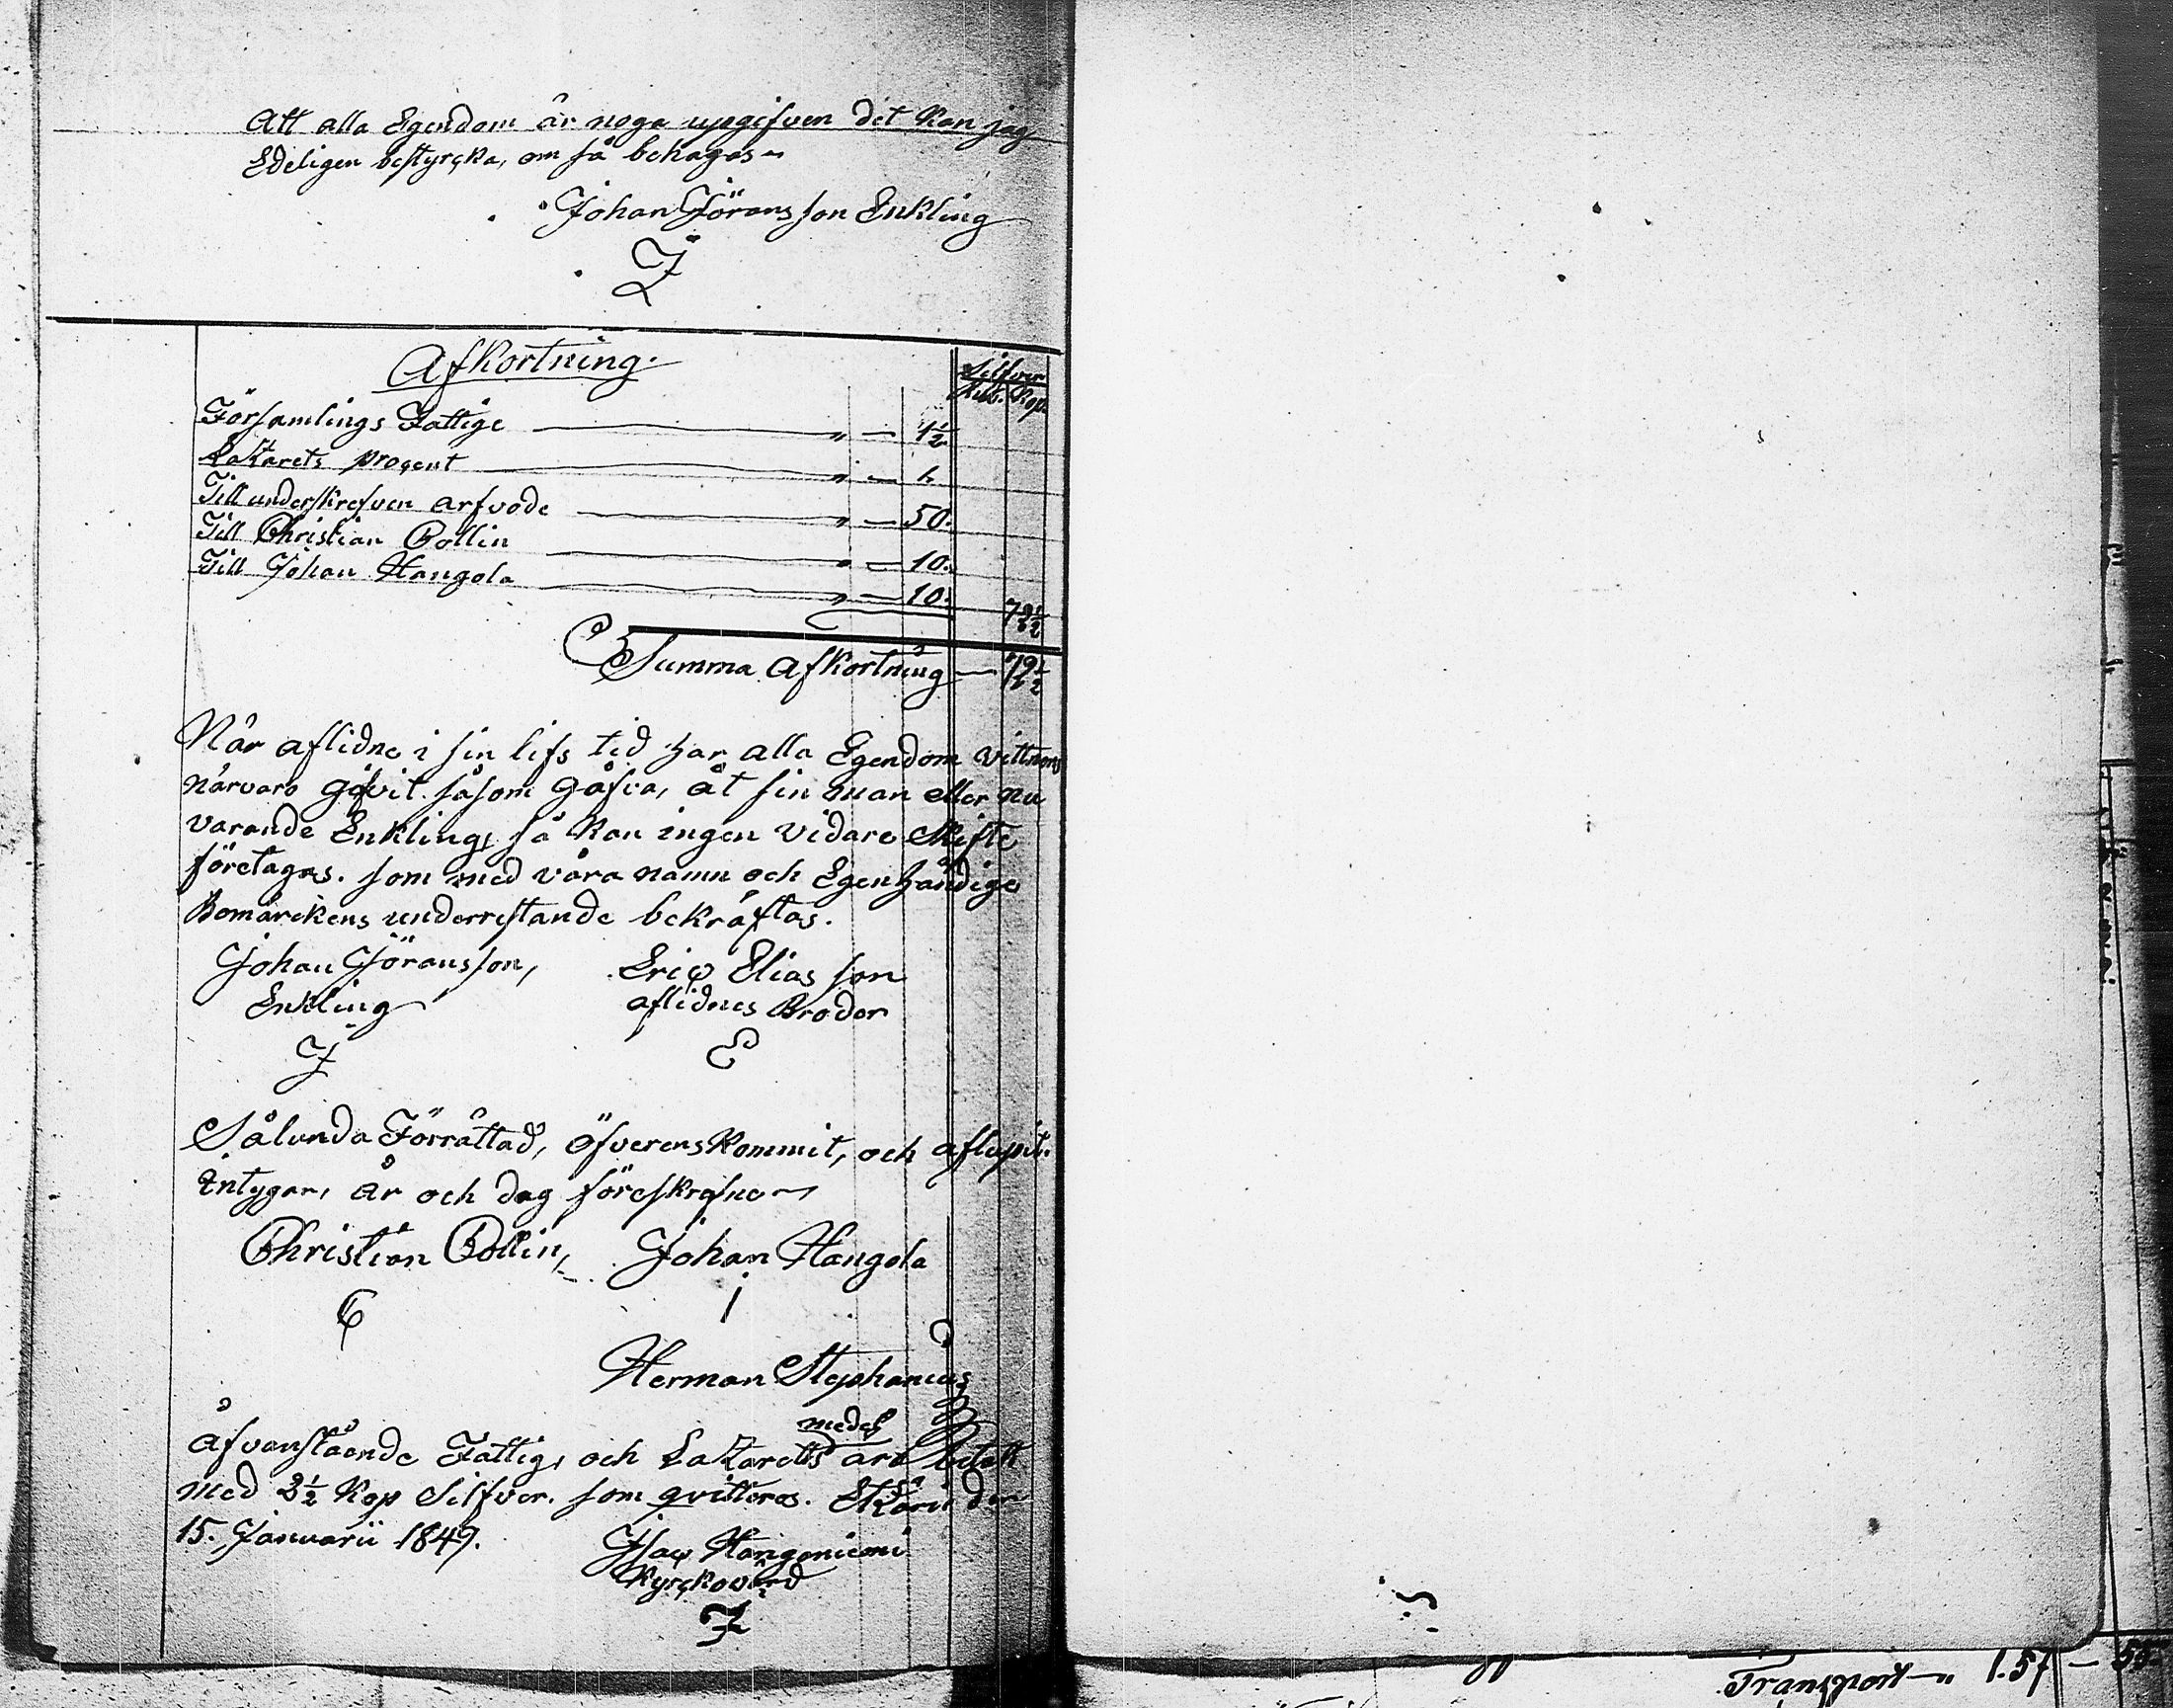 Att alla Egendom är noga upgifven det kan jag
Edeligen bestyrcka, om så behagas
Johan Göransson Enkling
Afkortning.
Silfver
Rub. Kop.
Församlings Fattige " — 1½
Lazarets procent " —
Till underskrefven arfvode " — 50.
Till Christian Collin " — 10.
Till Johan Hangola " — 10.
Summa Afkortning —
När aflidne i sin lifs tid har alla Egendom vittnens
närvaro gifvit såsom gåfva, åt sin man eller nu
varande Enkling, så kan ingen vidare skifte
företagas. som med våra namn och Egenhändige
Bomärckens underristande bekräftas.
Johan Göransson, Eric Eliasson
Enkling aflidnes Broder
J E
Sålunda Förrättad, öfverenskommit, och aflupit.
Intygar, år och dag föreskrefne
Christian Collin, Johan Hangola
Herman Stephanius
medel
Åfvanstående Fattig, och Lazaretts äro betalt
med 2½ Kop Silfver. som qvitteras. den
15. Januarii 1849.
Isac
Kyrckovärd
Transport — " 1.57 —